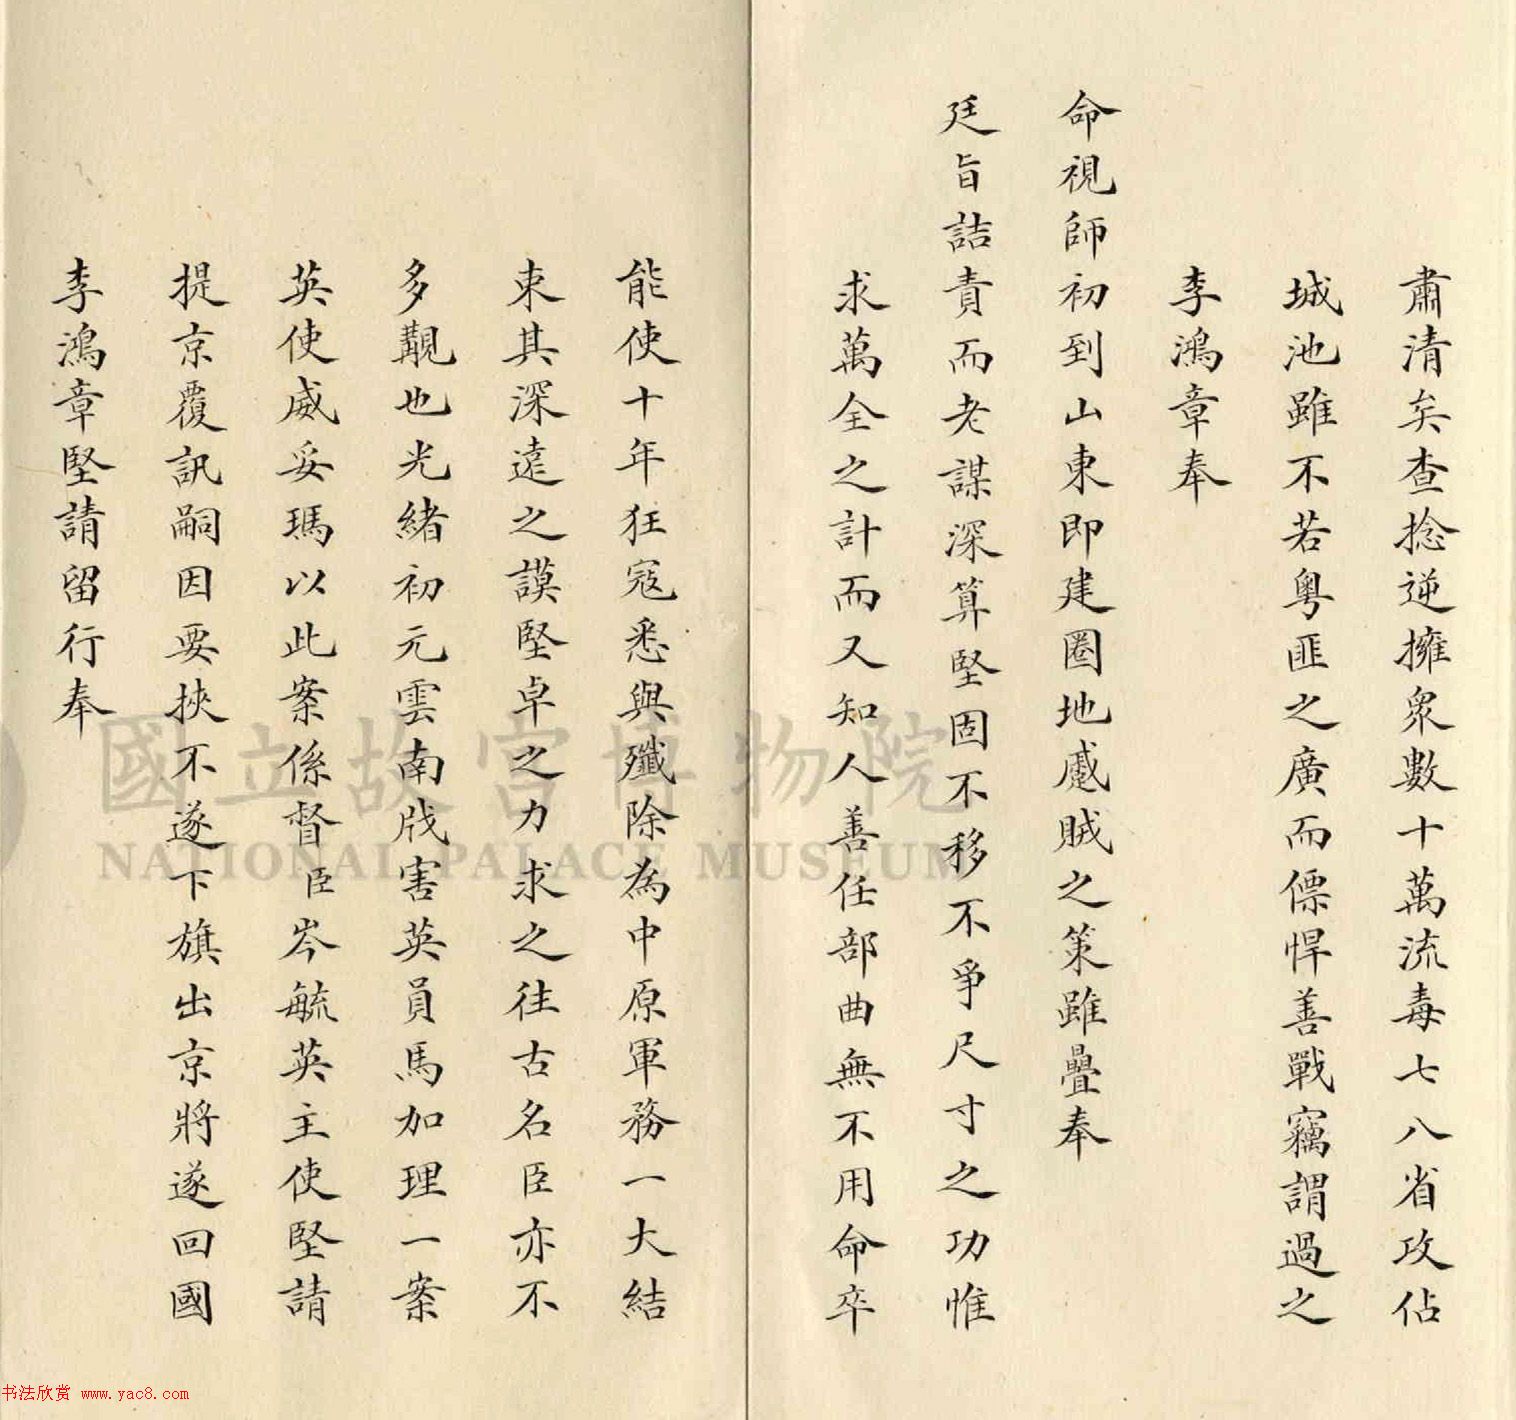 肅清矣查捻逆擁衆數十萬流毒七八省攻佔
城池雖不若粵匪之廣而僄悍善戰竊謂過之
李鴻章奉
命視師初到山東即建圈地蹙賊之策雖疊奉
廷旨詰責而老謀深算堅固不移不爭尺寸之功惟
求萬全之計而又知人善任部曲無不用命卒
能使十年狂寇悉與殲除為中原軍務一大結
束其深遠之謨堅卓之力求之往古名臣亦不
多覯也光緒初元雲南戕害英員馬加理一案
英使威妥瑪以此案係督臣岑毓英主使堅請
提京覆訊嗣因要挾不遂下旗出京將遂回國
李鴻章堅請留行奉
國立故宮博物院
NATIONAL PALACE MUSEUM
书法欣赏 www.yac8.com